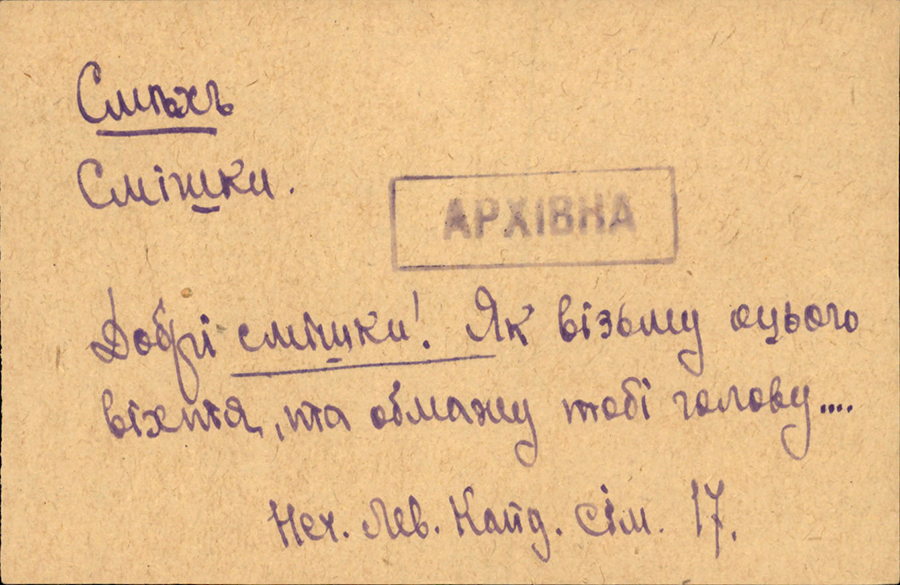 Смѣхъ
Смішки.
АРХІВНА
Добрі смішки! Як візьму оцього
віхтя, та обмажу тобі голову....
Неч. Лев. Кайд. сім. 17.